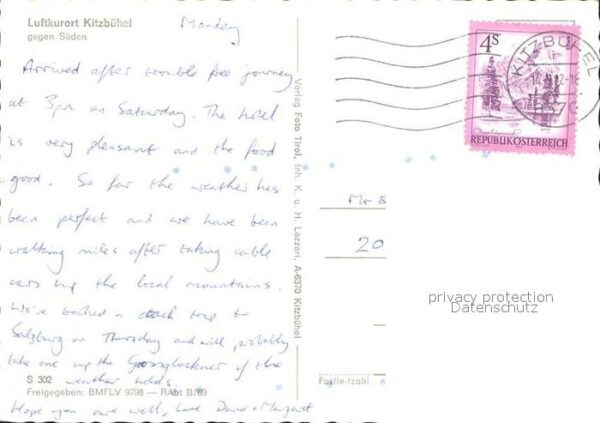 Luftkurort Kitzbühel
gegen Süden
Monday
Arrived after trouble free journey
at 3pm on Saturday. The hotel
is very pleasant and the food
good. So far the weather has
been perfect and we have been
walking miles after taking cable
cars up the local mountains.
We've booked a coach trip to
Salzburg on Thursday and will probably
take one up the Grossglockner if the
weather holds.
S 302
Freigegeben: BMFLV 9798 — RAbt B/69
Hope you are well, Love David + Margaret
Verlag Foto Tirol, Inh. K. u. H. Lazzari, A-6370 Kitzbühel
4S
REPUBLIK ÖSTERREICH
KITZBÜHEL
6370
Mr &
20
privacy protection
Datenschutz
Postleitzahl